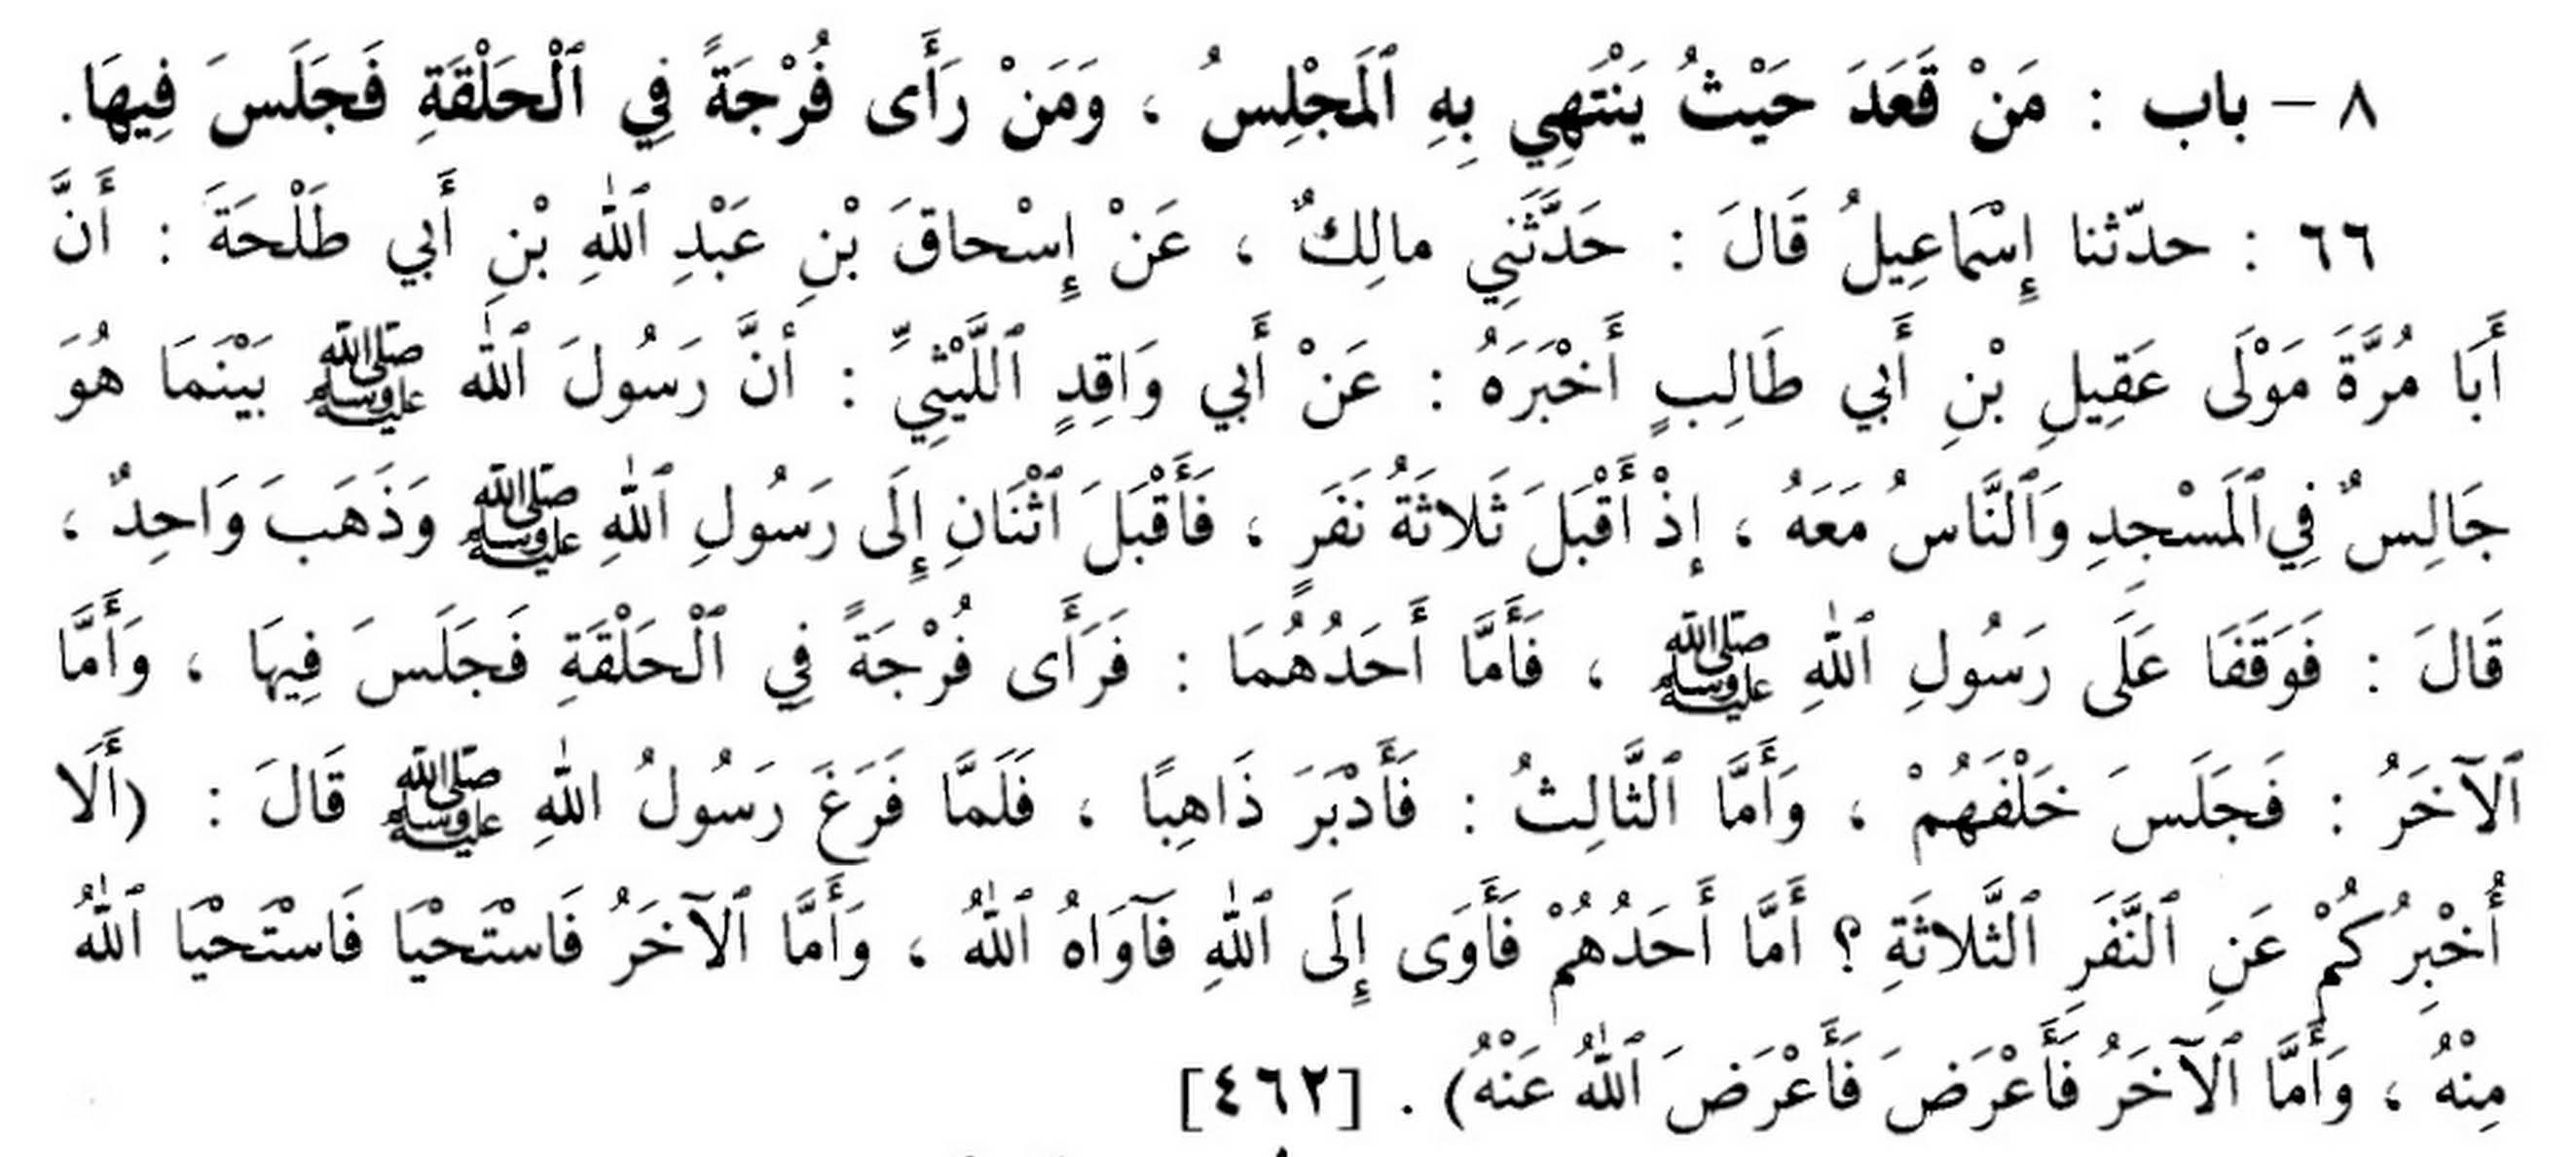 ٨ – باب : مَنْ قَعَدَ حَيْثُ يَنْتَهِي بِهِ ٱلْمَجْلِسُ ، وَمَنْ رَأَى فُرْجَةً فِي ٱلْحَلْقَةِ فَجَلَسَ فِيهَا.
٦٦ : حدّثنا إِسْمَاعِيلُ قَالَ : حَدَّثَنِي مالِكٌ ، عَنْ إِسْحاقَ بْنِ عَبْدِ ٱللهِ بْنِ أَبِي طَلْحَةَ : أَنَّ
أَبَا مُرَّةَ مَوْلَى عَقِيلِ بْنِ أَبِي طَالِبٍ أَخْبَرَهُ : عَنْ أَبِي وَاقِدٍ ٱللَّيْثِيِّ : أَنَّ رَسُولَ ٱللهِ ﷺ بَيْنَمَا هُوَ
جَالِسٌ فِي ٱلْمَسْجِدِ وَٱلنَّاسُ مَعَهُ ، إِذْ أَقْبَلَ ثَلاثَةُ نَفَرٍ ، فَأَقْبَلَ ٱثْنَانِ إِلَى رَسُولِ ٱللهِ ﷺ وَذَهَبَ وَاحِدٌ ،
قَالَ : فَوَقَفَا عَلَى رَسُولِ ٱللهِ ﷺ ، فَأَمَّا أَحَدُهُمَا : فَرَأَى فُرْجَةً فِي ٱلْحَلْقَةِ فَجَلَسَ فِيهَا ، وَأَمَّا
ٱلآخَرُ : فَجَلَسَ خَلْفَهُمْ ، وَأَمَّا ٱلثَّالِثُ : فَأَدْبَرَ ذَاهِبًا ، فَلَمَّا فَرَغَ رَسُولُ اللهِ ﷺ قَالَ : (أَلَا
أُخْبِرُكُمْ عَنِ ٱلنَّفَرِ ٱلثَّلاثَةِ ؟ أَمَّا أَحَدُهُمْ فَأَوَى إِلَى ٱللهِ فَآوَاهُ ٱللهُ ، وَأَمَّا ٱلآخَرُ فَاسْتَحْيَا فَاسْتَحْيَا ٱللهُ
مِنْهُ ، وَأَمَّا ٱلآخَرُ فَأَعْرَضَ فَأَعْرَضَ ٱللهُ عَنْهُ) . [٤٦٢]